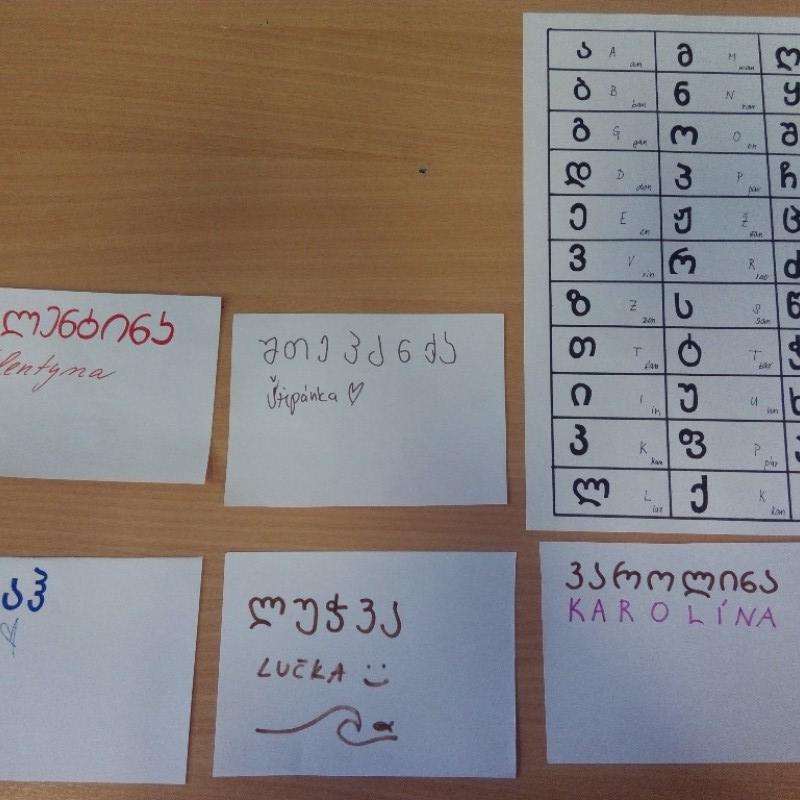 ა A an მ M man ლ
ბ B ban ნ N nar ყ
გ G gan ო O on შ
დ D don პ P par ჩ
ე E en ჟ Ž žan ც
ვ V vin რ R rae ძ
ზ Z zen ს S san წ
თ T tan ტ T tar ჭ
ი I in უ U un ხ
კ K kan ფ P par
ლ L las ქ K kan
ლენტინა
lentyna
შთეპანქა
Štěpánka ♡
აჰ
ლუჭკა
LUČKA
კაროლინა
KAROLÍNA